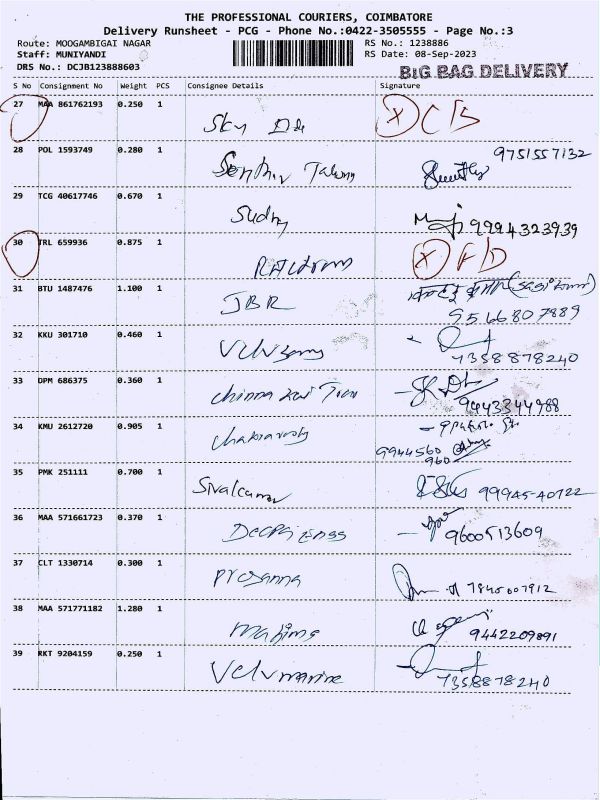 THE PROFESSIONAL COURIERS, COIMBATORE
Delivery Runsheet - PCG - Phone No.:0422-3505555 - Page No.:3
Route: MOOGAMBIGAI NAGAR RS No.: 1238886
Staff: MUNIYANDI RS Date: 08-Sep-2023
DRS No.: DCJB123888603 BIG BAG DELIVERY
S No Consignment No Weight PCS Consignee Details Signature
27 MAA 861762193 0.250 1 X
28 POL 1593749 0.280 1 9751557132
29 TCG 40617746 0.670 1 9994323939
30 TRL 659936 0.875 1 X
31 BTU 1487476 1.100 1 JBR
9566807889
32 KKU 301710 0.460 1
7358878240
33 DPM 686375 0.360 1 chinna
9443344988
34 KMU 2612720 0.905 1 chakravarthy
9944560
960
35 PMK 251111 0.700 1 Sivakumar
36 MAA 571661723 0.370 1 9600513609
37 CLT 1330714 0.300 1 prosanna 7845007912
38 MAA 571771182 1.280 1 9442209891
39 RKT 9204159 0.250 1 Velvmarine
7358878240